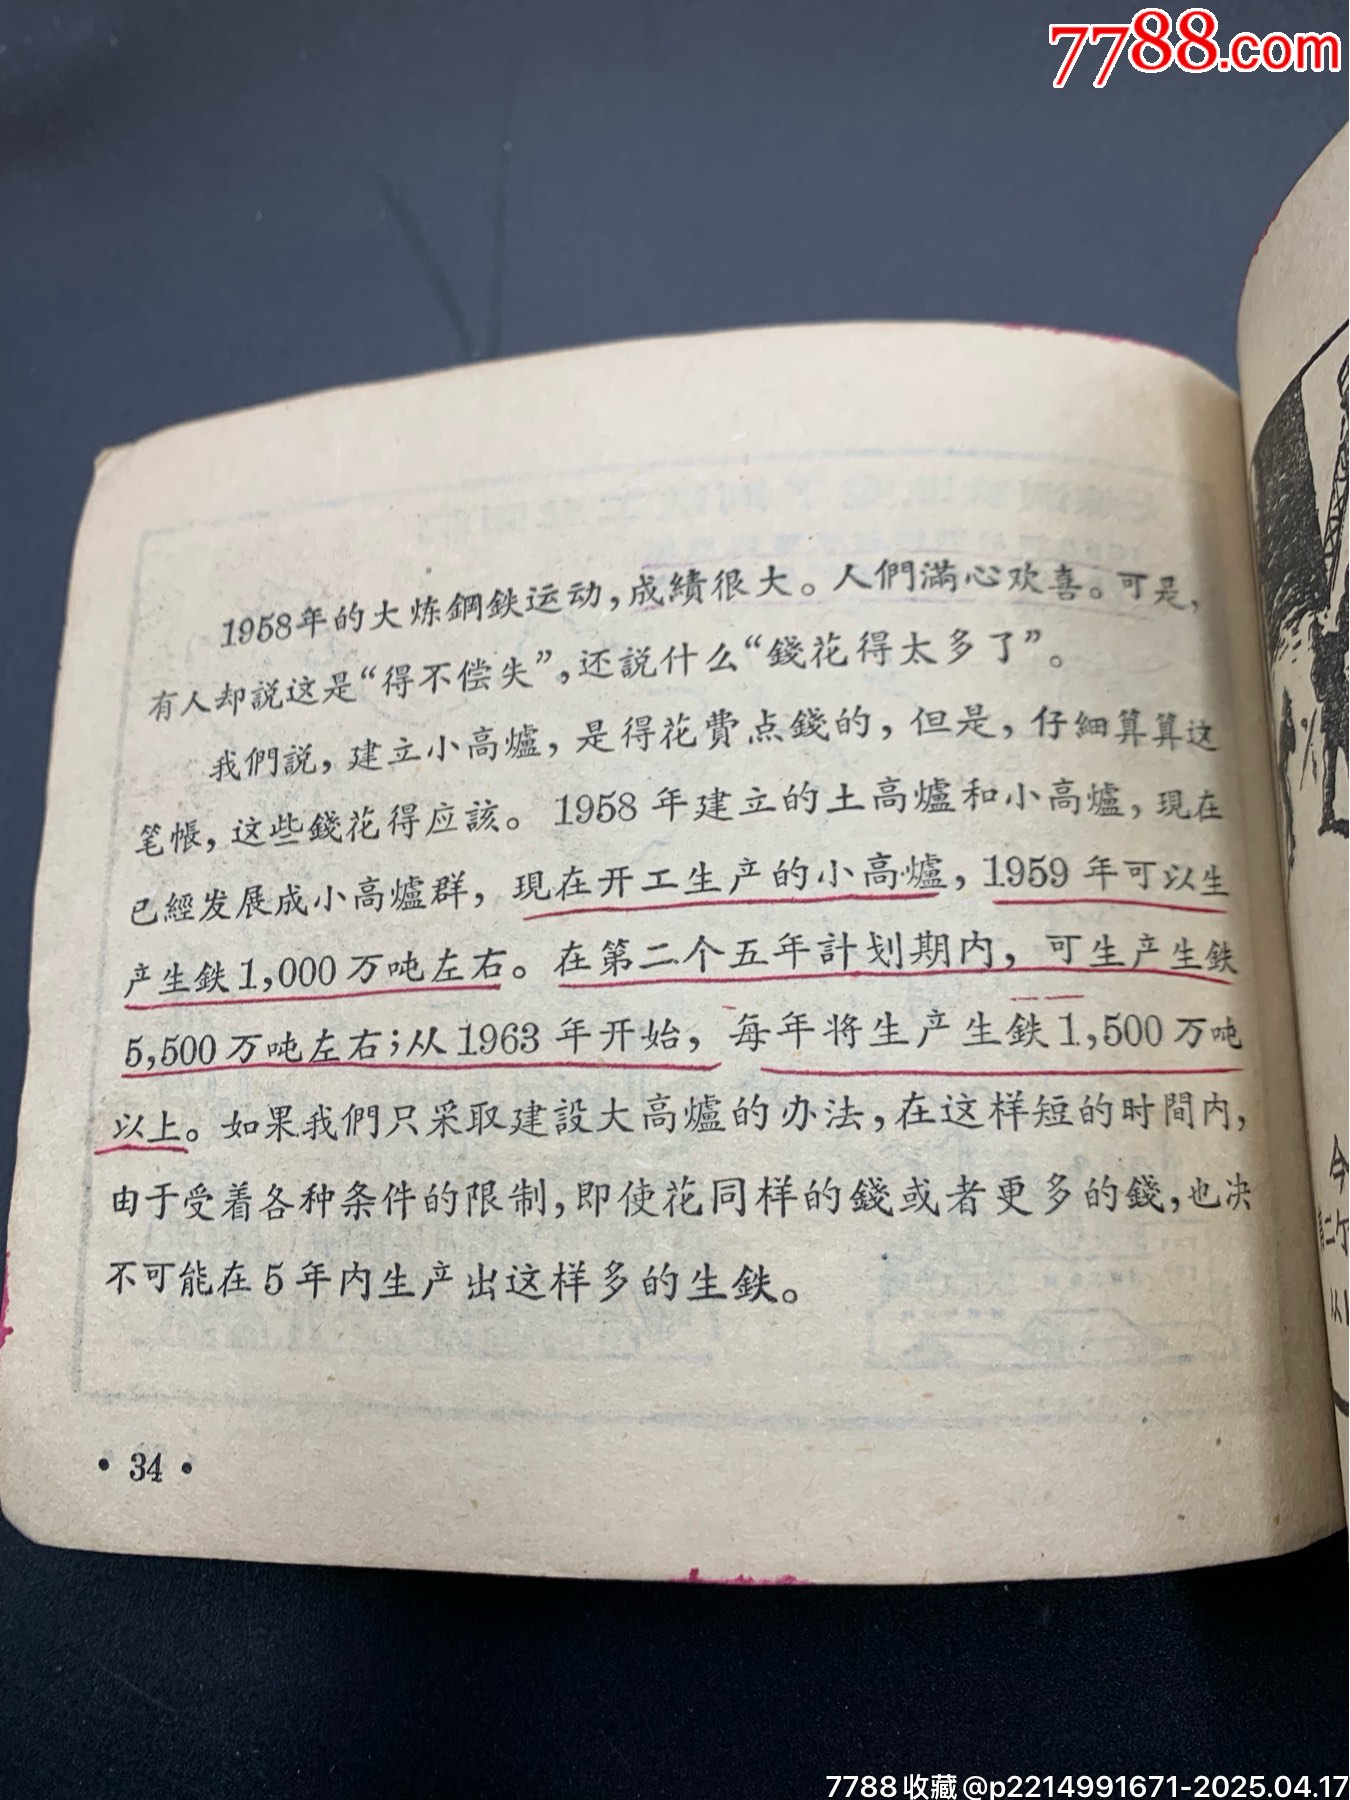 7788.com
1958年的大炼鋼鉄运动,成績很大。人們滿心欢喜。可是,
有人却說这是“得不偿失”,还說什么“錢花得太多了”。
我們說,建立小高爐,是得花費点錢的,但是,仔細算算这
笔帳,这些錢花得应該。1958年建立的土高爐和小高爐,現在
已經发展成小高爐群,現在开工生产的小高爐,1959年可以生
产生鉄1,000万吨左右。在第二个五年計划期内,可生产生鉄
5,500万吨左右;从1963年开始,每年将生产生鉄1,500万吨
以上。如果我們只采取建設大高爐的办法,在这样短的时間内,
由于受着各种条件的限制,即使花同样的錢或者更多的錢,也决
不可能在5年内生产出这样多的生鉄。
·34·
今
第二个
从1
7788收藏@p2214991671-2025.04.17